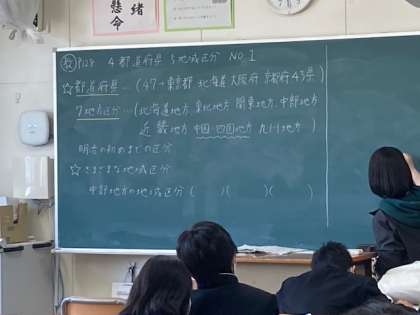 緒
懸命
教 P128 4 都道府県と地域区分 NO.1
☆都道府県…(47→東京都 北海道 大阪府 京都府 43県)
7地方区分…(北海道地方 東北地方 関東地方 中部地方
近畿地方 中国・四国地方 九州地方)
明治の初めまでの区分
☆さまざまな地域区分
中部地方の地域区分( )( )( )